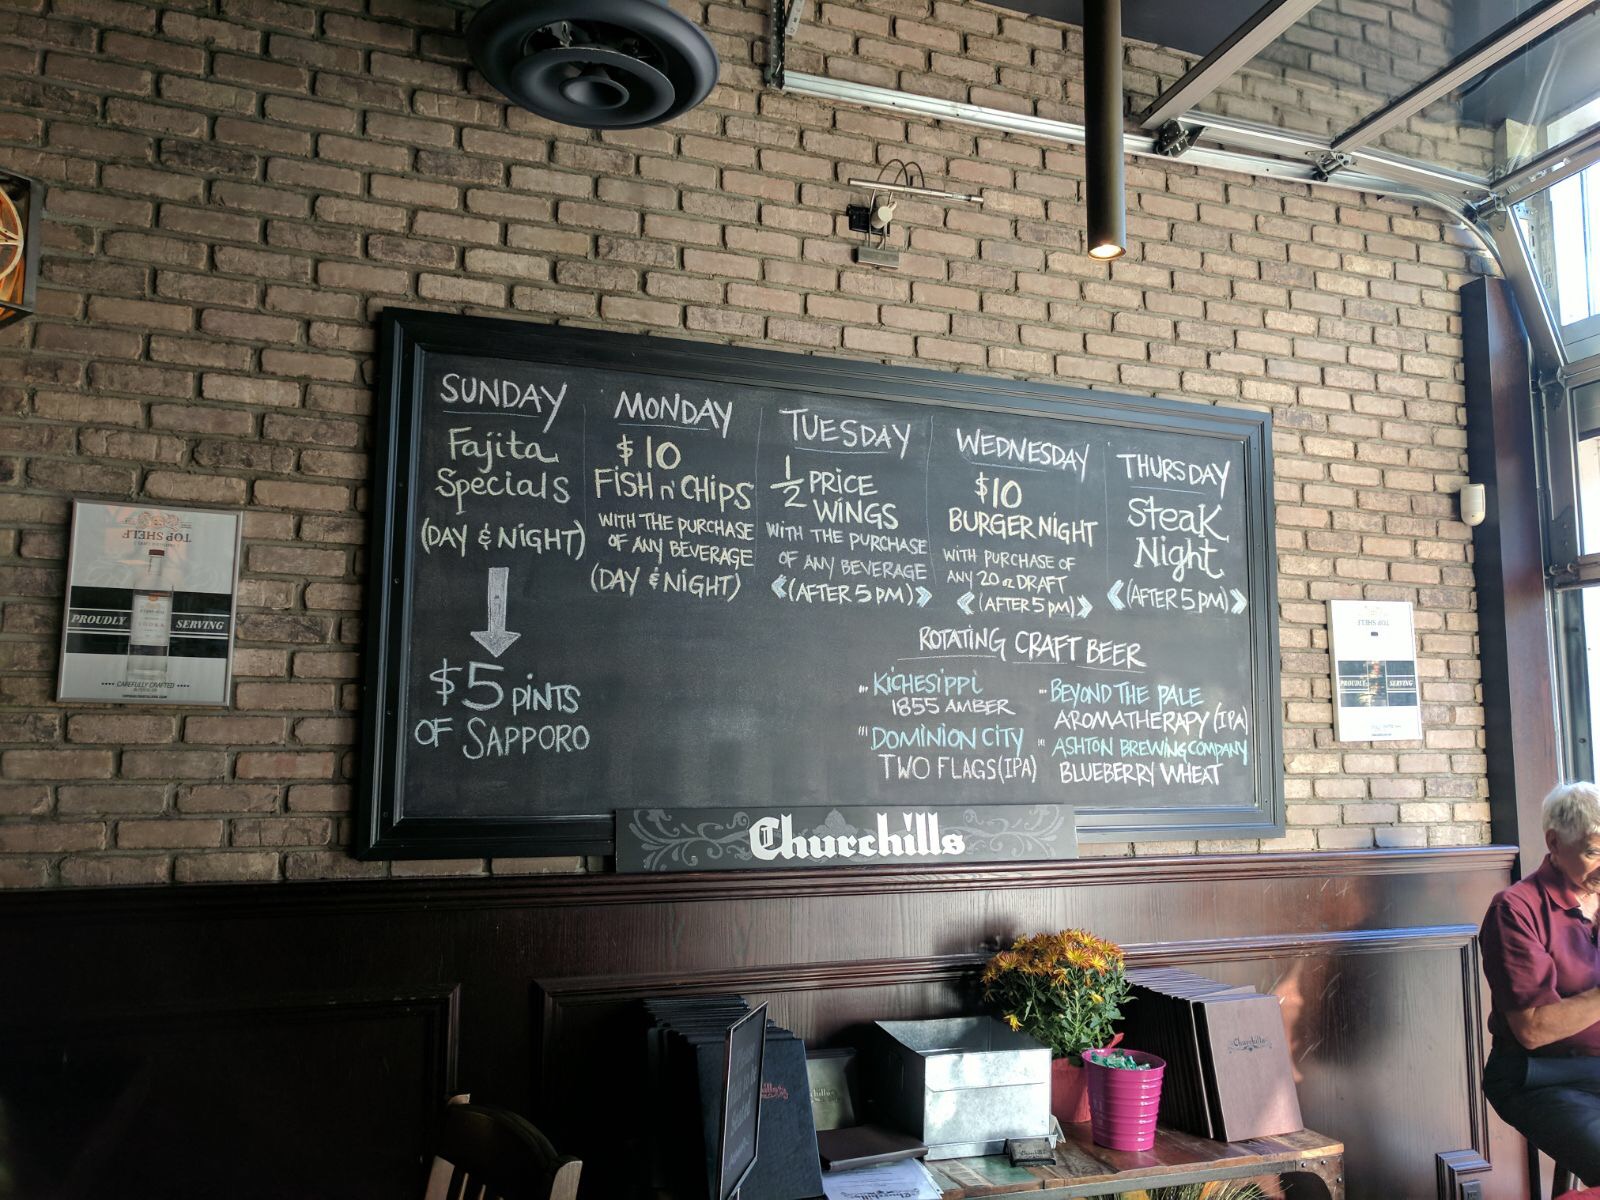 SUNDAY
Fajita
Specials
(DAY & NIGHT)
$5 PINTS
OF SAPPORO
MONDAY
$10
FISH n' CHIPS
WITH THE PURCHASE
OF ANY BEVERAGE
(DAY & NIGHT)
TUESDAY
1/2 PRICE
WINGS
WITH THE PURCHASE
OF ANY BEVERAGE
(AFTER 5 PM)
WEDNESDAY
$10
BURGER NIGHT
WITH PURCHASE OF
ANY 20 oz DRAFT
(AFTER 5 PM)
THURSDAY
Steak
Night
(AFTER 5 PM)
ROTATING CRAFT BEER
KICHESIPPI
1855 AMBER
DOMINION CITY
TWO FLAGS (IPA)
BEYOND THE PALE
AROMATHERAPY (IPA)
ASHTON BREWING COMPANY
BLUEBERRY WHEAT
Churchills
TOP SHELF
PROUDLY SERVING
VODKA
CAREFULLY CRAFTED
TOP SHELF
PROUDLY SERVING
Churchills
Churchills